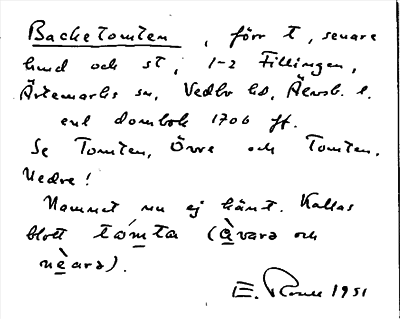 Backetomten, förr t, senare
hmd och st, 1-2 Fillingen,
Ärtemarks sn, Vedbo hd, Älvsb. l.
enl dombok 1706 ff.
Se Tomten, Övre och Tomten,
Nedre!
Namnet nu ej känt. Kallas
blott tòmta (àvara och
nèara).
E. 1951